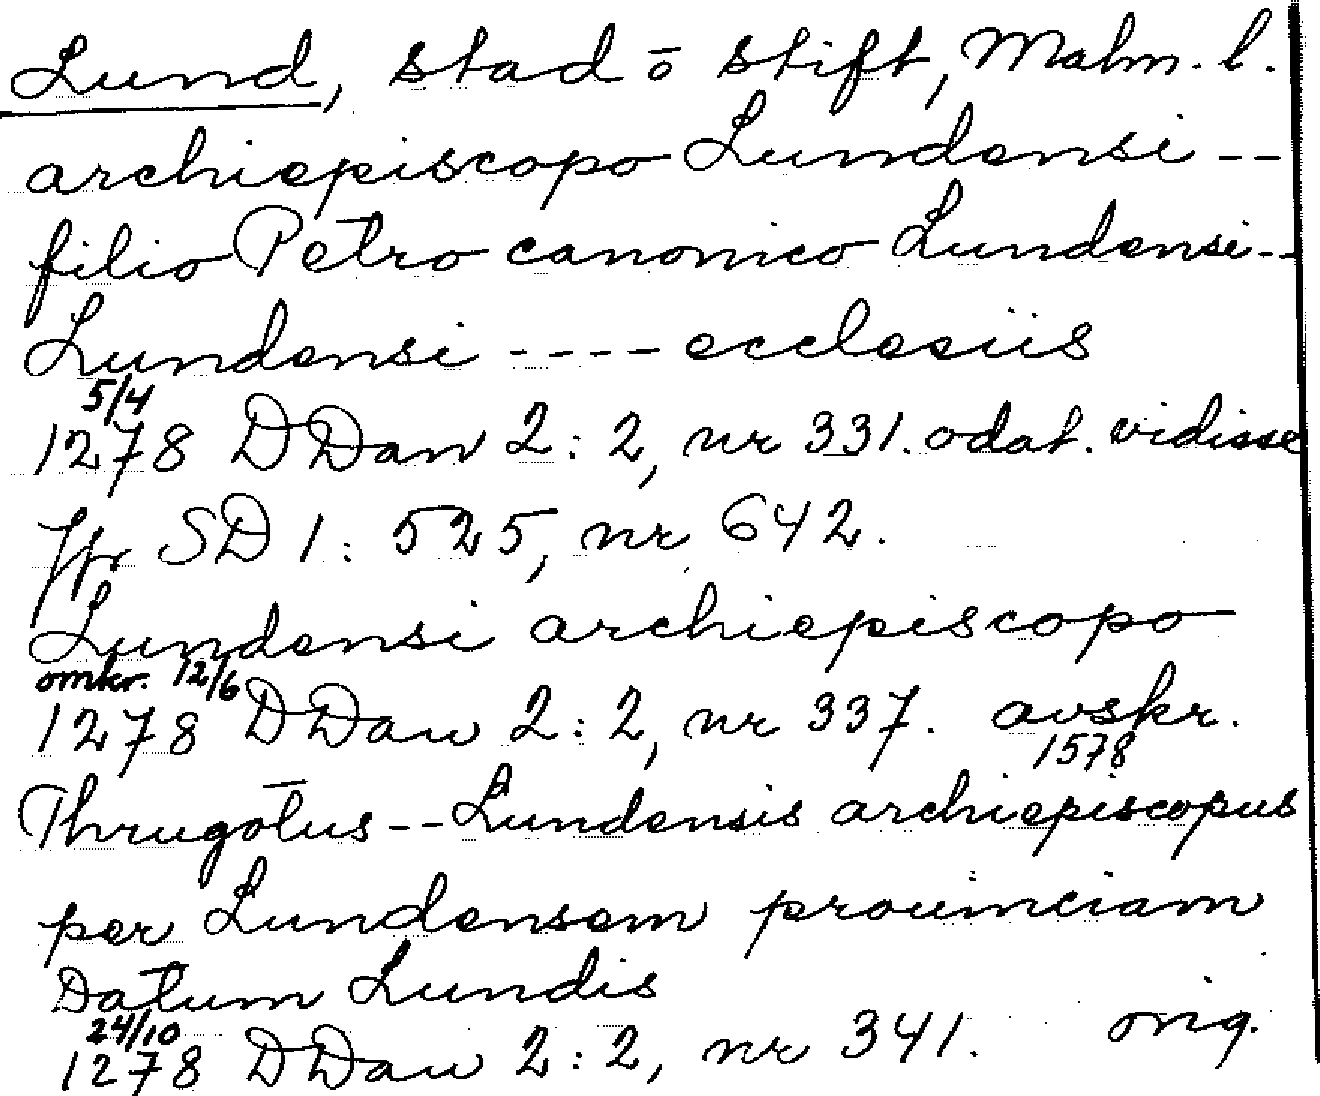 Lund, stad ō stift, Malm. l.
archiepiscopo Lundensi --
filio Petro canonico Lundensi--
Lundensi ---- ecclesiis
5/4
1278 DDan 2:2, nr 331. odat. vidisse
Jfr SD 1: 525, nr 642.
Lundensi archiepiscopo
omkr. 12/6
1278 DDan 2:2, nr 337. avskr.
1578
Thrugotus -- Lundensis archiepiscopus
per Lundensem prouinciam
Datum Lundis
24/10
1278 DDan 2:2, nr 341. orig.